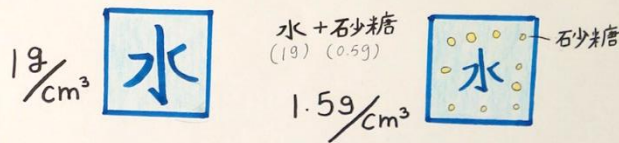 1g/cm³
水
水+砂糖
(1g) (0.5g)
1.5g/cm³
水
砂糖